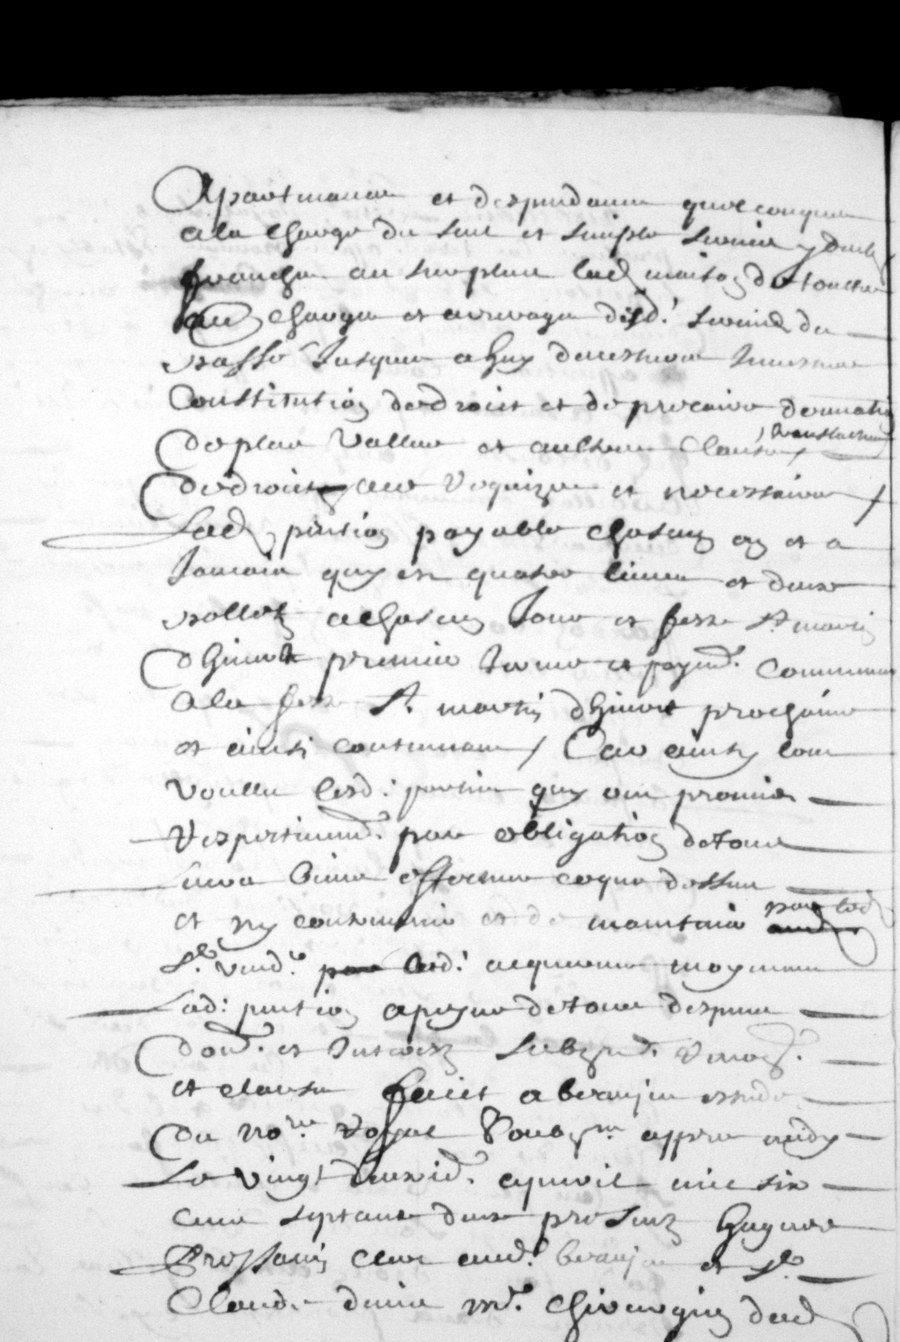 Apartenance et despendance quelconque
a la charge du sene et simple servis y deub
franche au surplus lad maison de toutte
Charges et arrerages desd.t servis du
passe Jusques a huy
Constitution de droict et de precaire donnation
de plus vallue et aultres clauses translation
de droict requizes et necessaires
Lad pention payable chascun an et a
quy est quatre livres et douze
sollz a chascun Jour et feste St martin
dhiver premier terme et payemt. commencant
a la feste St martin dhiver prochaine
et ainsi continuant / Car ainsi l'ont
voullu lesd. parties quy ont promis
respectivemt. par obligation de tous
leurs biens observer ce que dessus
et ny contrevenir et de maintenir par led
Sr. vend.r lesd. acquereurs moyenant
lad. pention a peyne de tous despens
dom. et Interestz Soubzmis. Renonc.
et clauses faict a beaujeu estude
du no.re royal soub.ne appres midy
Le vingt deuxie. apvril mil six
cent septante deux presentz hugues
Brossard clerc aud. beaujeu et Sr
Claude mr. chirurgien dud